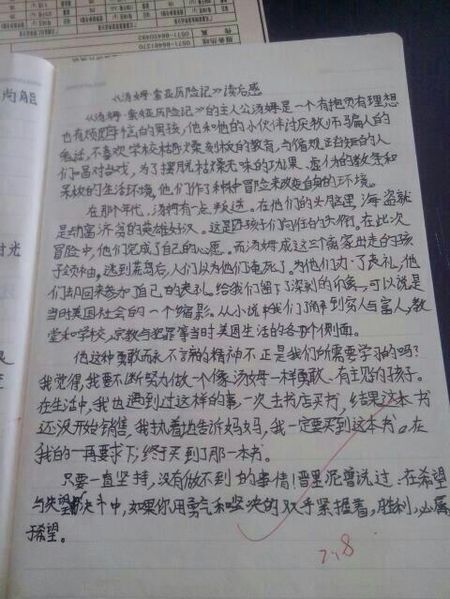 《汤姆·索亚历险记》读后感
《汤姆·索亚历险记》的主人公汤姆是一个有抱负有理想
也有烦恼的男孩,他和他的小伙伴讨厌牧师骗人的
鬼话,不喜欢学校枯燥刻板的教育,与循规正的人
们为对,为了摆脱枯燥无味的功课、虚伪的教条和
呆板的生活环境,他们作了种种冒险来改变自身的环境。
在那个年代,汤姆有一点叛逆。在他们的头脑里,海盗就
是劫富济贫的英雄好汉。这是男孩子们向往的头衔。在此次
冒险中,他们完成了自己的心愿。而汤姆成这三个离家出走的孩
子领袖。逃到荒岛后,人们以为他们淹死了。为他们办了丧礼,他
们却回来参加自己的丧礼。给我们留下了深刻的印象,可以说是
当时美国社会的一个缩影。从小说中我们了解到穷人与富人,教
堂和学校,宗教与犯罪等当时美国生活的各个侧面。
他这种勇敢而永不言弃的精神不正是我们所需要学习的吗?
我觉得,我要不断努力做一个像汤姆一样勇敢、有主见的孩子。
在生活中,我也遇到过这样的事,一次去书店买书,结果这本书
还没开始销售,我执着地告诉妈妈,我一定要买到这本书。在
我的一再要求下,终于买到了那一本书。
只要一直坚持,没有做不到的事情!普里尼曾说过:在希望
与失望的决斗中,如果你用勇气和坚决的双手紧握着,胜利,必属
于希望。
7.8